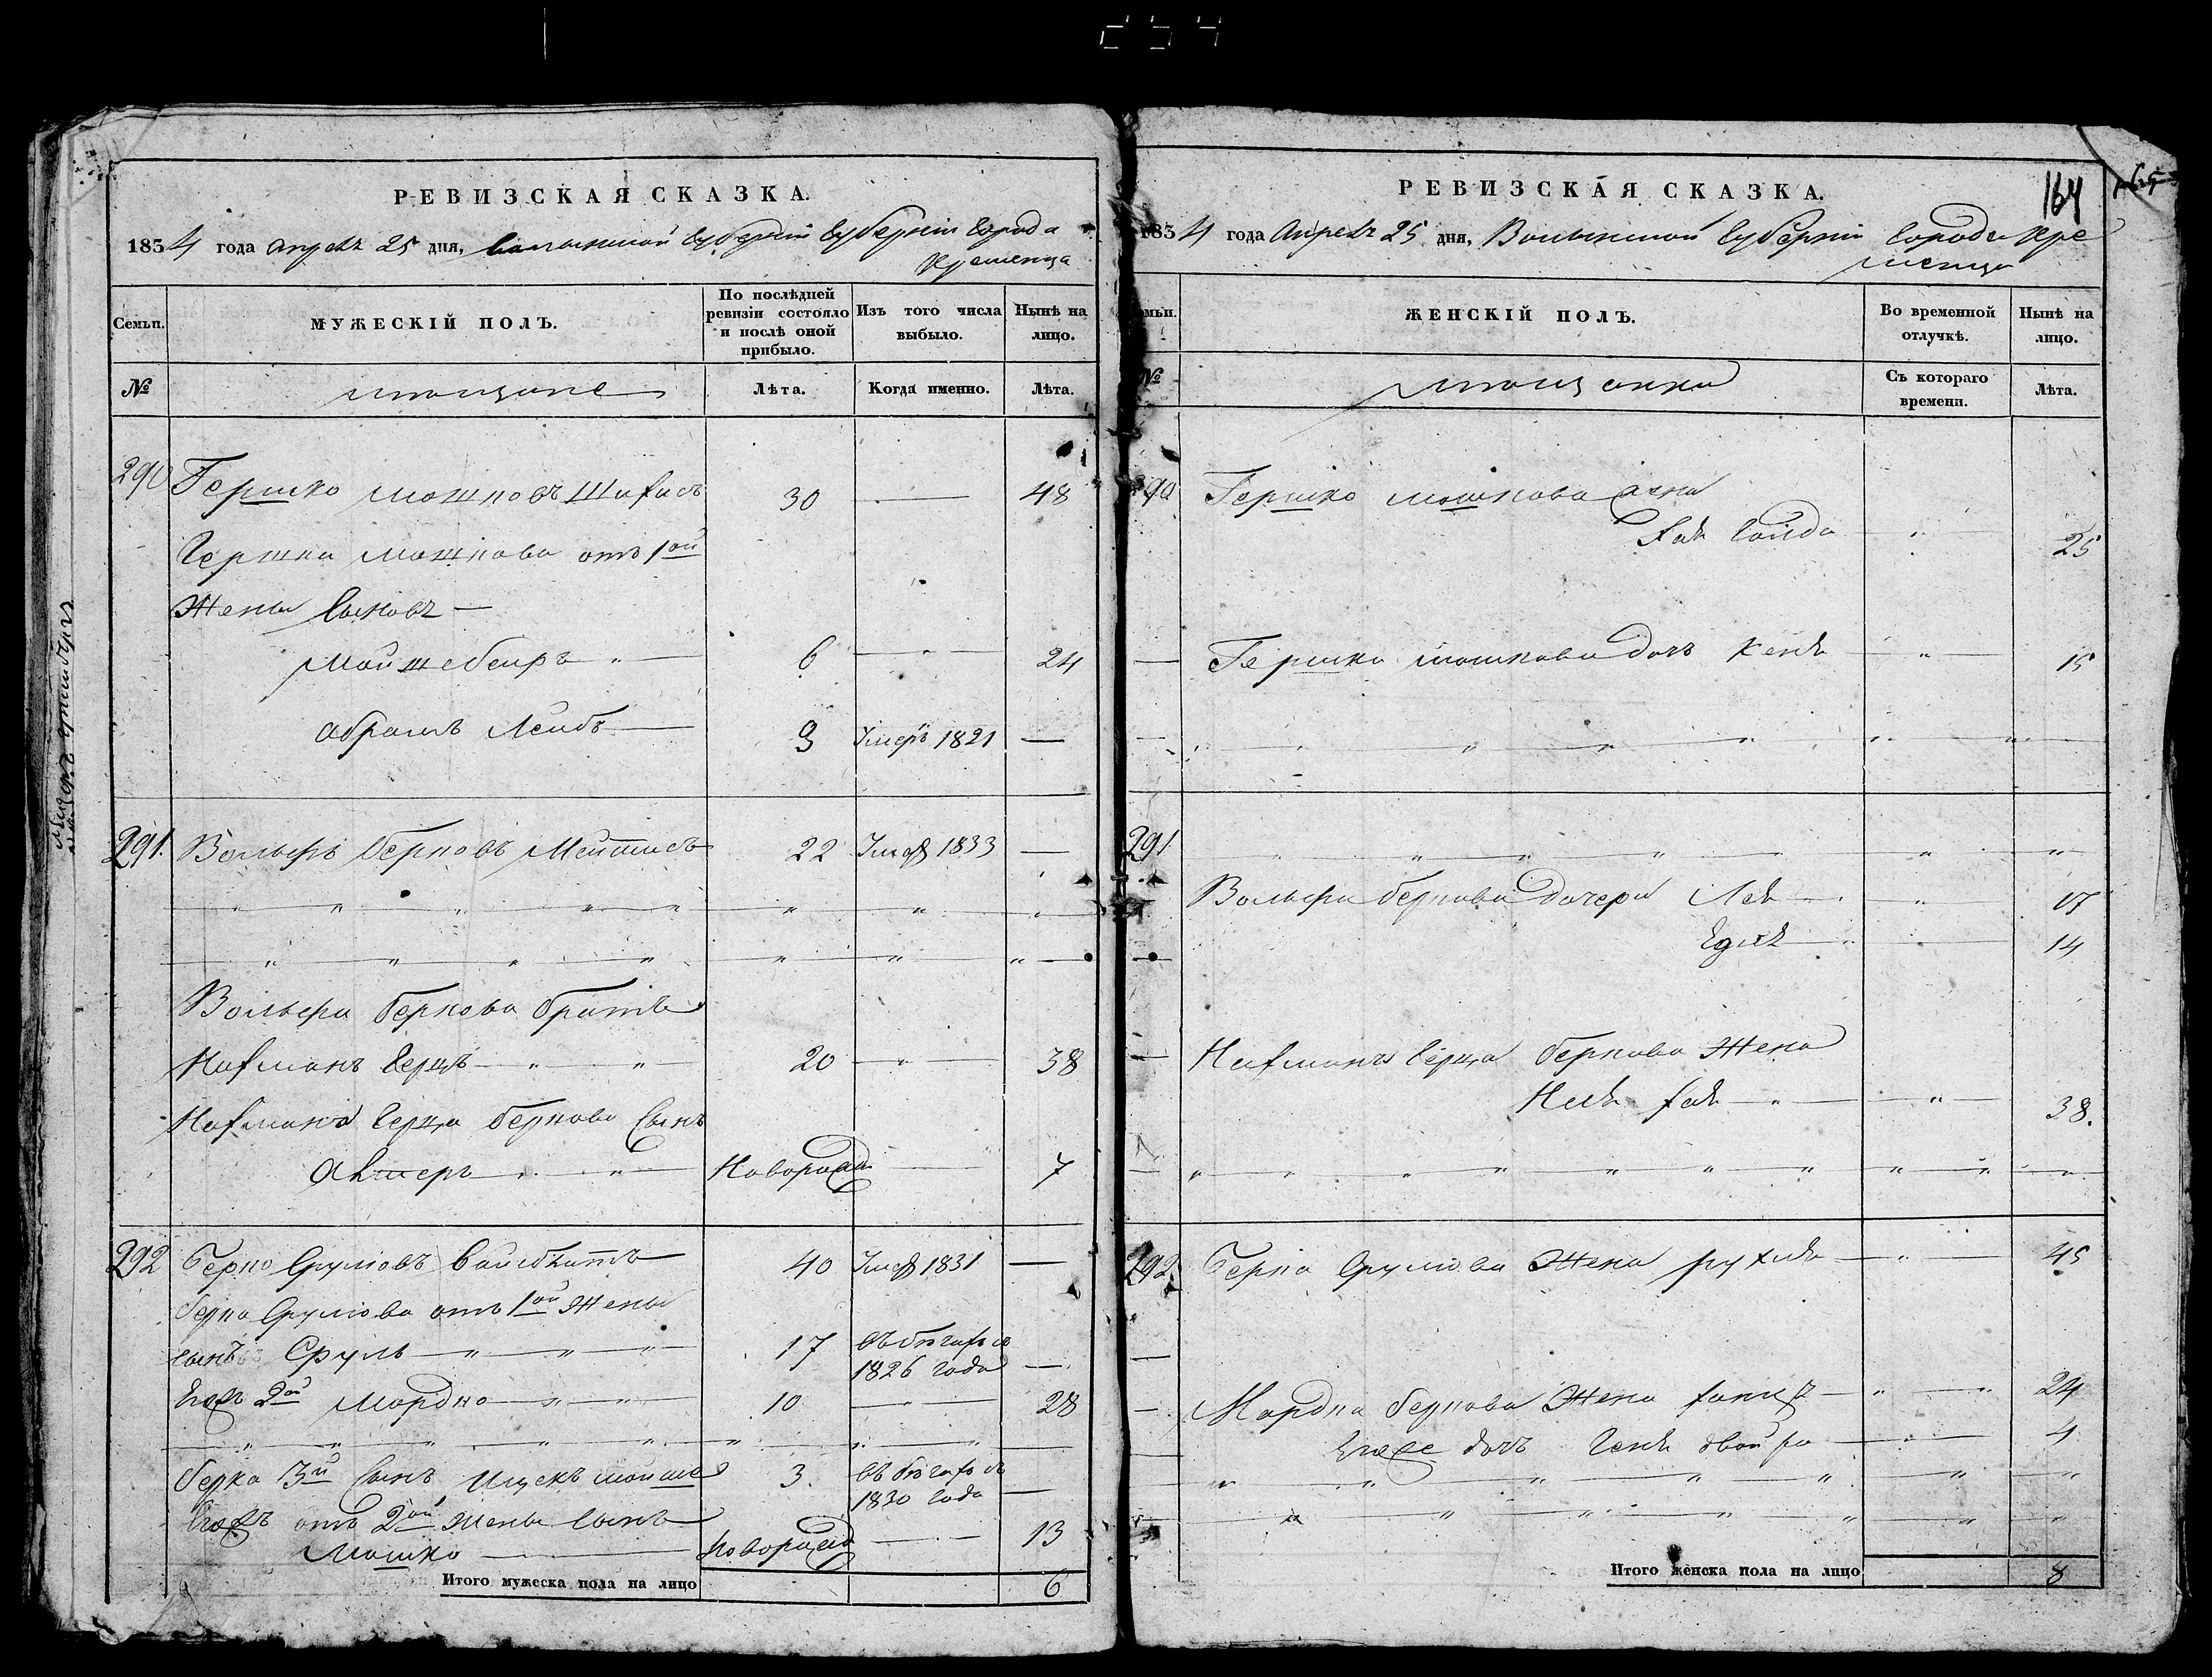 254
РЕВИЗСКАЯ СКАЗКА.
1834 года апреля 25 дня, Волынской Губернии Губернии Города
Кременца
Семьи.
МУЖЕСКІЙ ПОЛЪ.
По послѣдней ревизіи состояло и послѣ оной прибыло.
Изъ того числа выбыло.
Нынѣ на лицо.
№
мещане
Лѣта.
Когда именно.
Лѣта.
290 Гершко Мошковъ 30 — 48
Гершка Мошкова отъ 1ой
Жены Сыновъ —
6 — " — 24
Абрамъ Лейбъ — 3 Умеръ 1821 —
291. Вольфъ Берковъ 22 Умеръ 1833 —
Вольфа Беркова братъ
Нахманъ Герцъ — " — " — 20 — " — 38
Нахмана Герца Беркова Сынъ
Новорожд — 7
292 Берко Сруловъ 40 Умеръ 1831 —
Берка Срулова отъ 1ой Жены
сынъ Сруль — " — " — " — 17 въ бегахъ съ
1826 года —
Егожъ 2ой Мордко — " — " — 10 — " — 28
Берка 3й Сынъ Ицекъ Мойше 3. въ бегахъ съ
1830 года —
Егожъ отъ 2ой жены сынъ
Мошко — Новорожд — 13
Итого мужеска пола на лицо 6
РЕВИЗСКАЯ СКАЗКА.
164
165
1834 года Апреля 25 дня, Волынской Губернии Города Кре
менца
ЖЕНСКІЙ ПОЛЪ.
Во временной отлучкѣ.
Нынѣ на лицо.
№
мещанки
Съ котораго времени.
Лѣта.
290 Гершко Мошкова Жена
" — 25
— Гершка Мошкова Дочь Кейля — " — 15
291
Вольфа Беркова Дочери Лея — " — 17
14
— Нахмана Герца Беркова Жена
— " — " — 38.
292. Берка Срулова Жена Рухля — " — 45
— Мордка Беркова Жена — " — " 24
Егоже дочь Двойра — 4
Итого женска пола на лицо 8